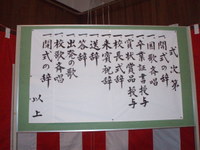 式次第
一開式の辞
一国歌斉唱
一卒業証書授与
一賞状賞品授与
一校長式辞
一来賓祝辞
一送辞
一答辞
一出発の歌
一校歌斉唱
一閉式の辞
以上